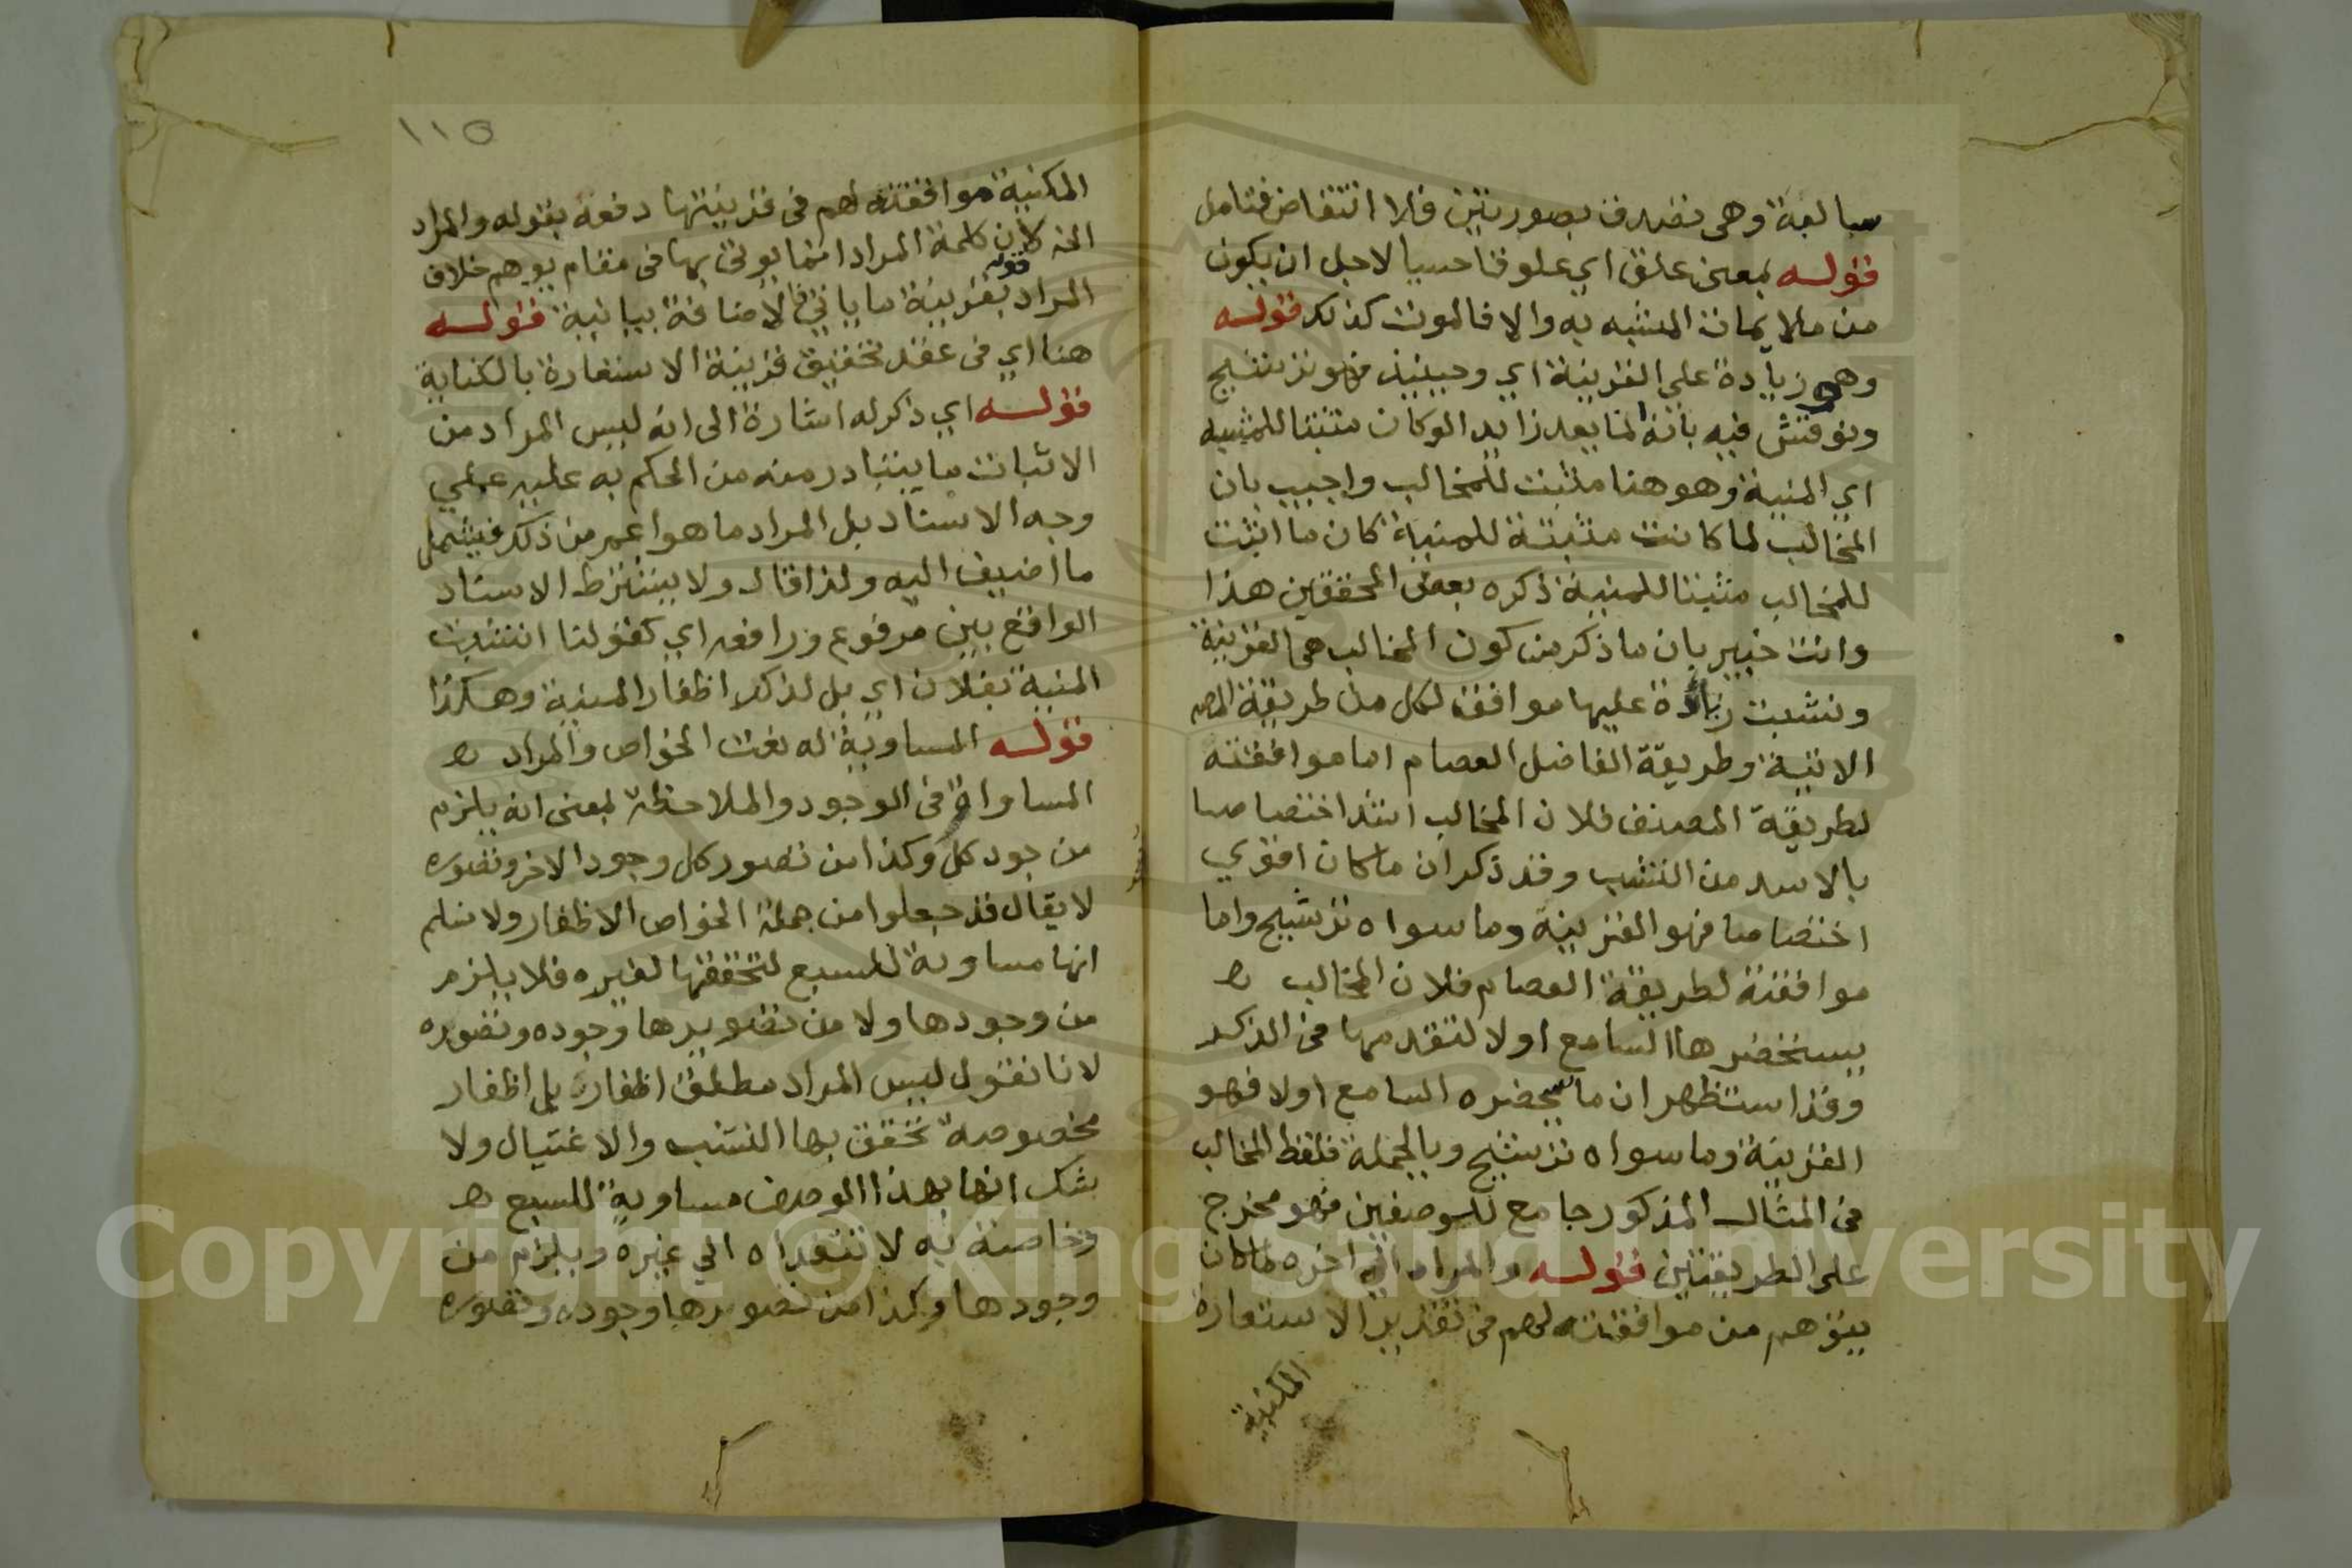 سالبة وهى تصدق بصورتين فلا انتقاض فتامل
قوله بمعنى علق اي علوقا حسيا لاجل ان يكون
من ملايمات المشبه به والا فالموت كذلك قوله
وهي زيادة على القرينة اي وحينئذ فهو ترشيح
ونوقش فيه بانه انما يعد زايدا لو كان مثبتا للمشبه
اي المنية وهو هنا مثبت للمخالب واجيب بان
المخالب لما كانت مثبتة للمنية كان ما اثبت
للمخالب مثبتا للمنية ذكره بعض المحققين هذا
وانت خبير بان ما ذكر من كون المخالب هي القرينة
ونشبت زيادة عليها موافق لكل من طريقة المصـ
الاتية وطريقة الفاضل العصام اما موافقته
لطريقة المصنف فلان المخالب اشد اختصاصا
بالاسد من النشب وقد ذكر ان ما كان اقوي
اختصاصا فهو القرينة وما سواه ترشيح واما
موافقته لطريقة العصام فلان المخالب
يستحضرها السامع اولا لتقدمها فى الذكر
وقد استظهر ان ما يستحضره السامع اولا فهو
القرينة وما سواه ترشيح وبالجملة فلفظ المخالب
فى المثال المذكور جامع للوصفين فهو مخرج
على الطريقتين قوله والمراد الى اخره لما كان
يتوهم من موافقته لهم فى تقرير الاستعارة
المكنية
١١٥
المكنية موافقته لهم فى قرينتها دفعه بقوله والمراد
الخ لان كلمة المراد انما يوتى بها فى مقام يوهم خلاف
المراد بقرينة ما ياتي قوله الاضافة بيانية قوله
هنا اي فى عقد تحقيق قرينة الاستعارة بالكناية
قوله اي ذكر له اشارة الى انه ليس المراد من
الاثبات ما يتبادر منه من الحكم به عليه على
وجه الاسناد بل المراد ما هو اعم من ذلك فيشمل
ما اضيف اليه ولذا قال ولا يشترط الاسناد
الواقع بين مرفوع ورافعه اي كقولنا انشبت
المنية بفلان اي بل لذكر اظفار المنية وهكذا
قوله المساوية له نعت الخواص والمراد
المساواة فى الوجود والملاحظة بمعنى انه يلزم
من جود كل وكذا من تصور كل وجود الاخر وتصوره
لا يقال قد جعلوا من جملة الخواص الاظفار ولا نسلم
انها مساوية للسبع لتحققها لغيره فلا يلزم
من وجودها ولا من تصويرها وجوده وتصوره
لانا نقول ليس المراد مطلق اظفاره بل اظفار
مخصوصة تحقق بها النشب والاغتيال ولا
شك انها بهذا الوصف مساوية للسبع
وخاصة به لا تتعداه الي غيره ويلزم من
وجودها وكذا من تصويرها وجوده وتصوره
Copyright © King Saud University